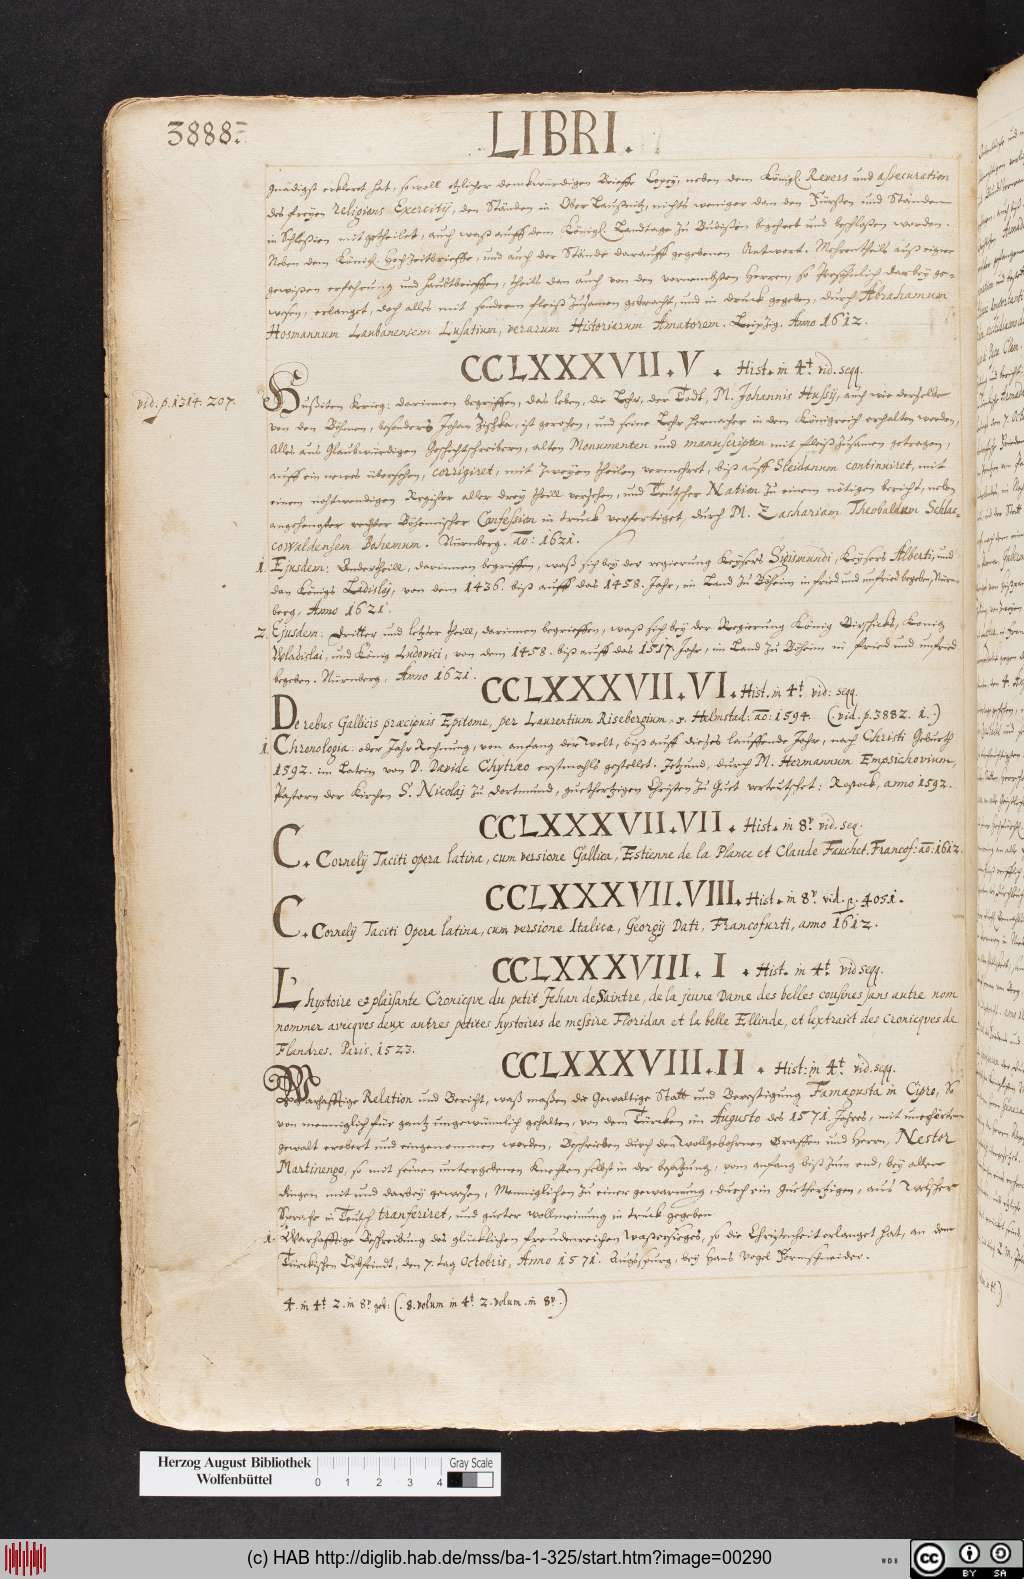 3888.
LIBRI.
gnädigst erkleret hat, sowoll etzlicher denkwürdigen Brieffe Copey, neben dem Königl. Revers und assecuration
des freyen religions Exercitij, den Ständen in Ober Laußnitz, nichts weniger dan den Fürsten und Ständen
in Schlesien mitgetheilet, auch waß auff dem Königl. Landtage zu Budissin begehret und beschloßen worden.
Neben dem Königl. und auch der Stände darauff gegebenen Antwort. Mehrentheils auß eigner
gewißen erfahrung und theils dan auch von den vornembsten Herren, so Persöhnlich darbey ge-
wesen, erlanget, doch alles mit sondern fleiß zusamen gebracht, und in druck gegeben, durch Abrahamum
Hosmannum Laubanensem Lusatium, verarum Historiarum Amatorem. Leipzig. Anno 1612.
CCLXXXVII. V. Hist. in 4t. vid. seqq.
vid. p. 1314. 207.
Hußiten Krieg: darinnen begriffen, das leben, die Lehr, der Todt, M. Johannis Hussij, auch wie derselbe
von den Böhmen, besonders Johan Zischka, ist gerochen, und seine Lehr hernacher in dem Königreich erhalten worden,
alles aus Glaubwürdigen Geschichtschreibern, alten Monumenten und manuscripten mit fleiß zusamen getragen,
auffs ein newes übersehen, corrigiret, mit zweyen theilen vermehret, biß auff Sleidanum continuiret, mit
einem nohtwendigen Register aller drey theill versehen, und Teutscher Nation zu einem nötigen bericht, neben
angehengter rechter Böhmischer Confession in truck verfertiget, durch M. Zachariam Theobaldum Schlac-
cowaldensem Bohemum. Nürnberg. ao: 1621.
1. Ejusdem: Ander theill, darinnen begriffen, waß sich bey der regierung Keysers Sigismundi, Keysers Alberti, und
dan Königs Ladislaj, von dem 1436. biß auff das 1458. Jahr, in Land zu Böheim in fried und unfried begeben, Nürn-
berg, Anno 1621.
2. Ejusdem: Dritter und letzter theill, darinnen begrieffen, waß sich bey der Regierung König Girsicks, König
Wladislai, und König Ludovici, von dem 1458. biß auff das 1517. Jahr, im Land zu Böheim in fried und unfried
begeben. Nürnberg, Anno 1621.
CCLXXXVII. VI. Hist. in 4t. vid: seqq.
De rebus Gallicis præcipuis Epitome, per Laurentium Risebergium. Helmstad: ao: 1594. (vid. p. 3882. 1.)
1. Chronologia: oder Jahr Rechnung, von anfang der Welt, biß auff dieses lauffende Jahr, nach Christi Geburth
1592. im Latein von D. Davide Chytræo erstmahls gestellet. Jetzund, durch M. Hermannum Empsychovium,
Pastorn der Kirchen S. Nicolaj zu Dortmund, guethertzigen Christen zu Guet verteutschet: Rostock, anno 1592.
CCLXXXVII. VII. Hist. in 8v. vid. seq.
C. Cornelij Taciti opera latina, cum versione Gallica, Estienne de la Plance et Claude Fauchet. Francof: ao: 1612.
CCLXXXVII. VIII. Hist. in 8v. vid. p. 4051.
C. Cornelij Taciti Opera latina, cum versione Italica, Georgij Dati, Francofurti, anno 1612.
CCLXXXVIII. I. Hist. in 4t. vid seqq.
L'hystoire & plaisante Cronicqve du petit Jehan de Saintre, de la jeune Dame des belles cousines sans autre nom
nommer avecqves deux autres petites hystoires de messire Floridan et la belle Ellinde, et lextraict des Cronicqves de
Flandres. Paris. 1523.
CCLXXXVIII. II. Hist: in 4t. vid. seqq.
Warhafftige Relation und Bericht, waß maßen die Gewaltige Statt und Bevestigung Famagusta in Cipro, so
von menniglich für gantz ungewinnlich gehalten, von dem Türcken im Augusto des 1571 Jahres, mit unerhörtem
gewalt erobert und eingenommen worden, Beschrieben durch den Wollgebohrnen Graffen und Herrn, Nestor
Martinengo, so mit seinen untergebenen Knechten selbst in der besatzung, vom anfang biß zum end, bey allen
dingen mit und darbey gewesen, Menniglichen zu einer gewarnung, durch ein guethertzigen, aus Welscher
Sprach in Teutsch transferiret, und gueter wollmeinung in truck gegeben
1. Warhafftige Beschreibung des glücklichen freudenreichen so die Christenheit erlanget hat, an dem
Türckischen Erbfeindt, den 7. tag Octobris, Anno 1571. Augspurg, bey Hans Vogel Formschneider.
4. in 4t. 2. in 8v. geb: (. 8. volum in 4t. 2. volum. in 8v.)
Herzog August Bibliothek
Wolfenbüttel
0 1 2 3 4
Gray Scale
(c) HAB http://diglib.hab.de/mss/ba-1-325/start.htm?image=00290
WDB
cc BY SA